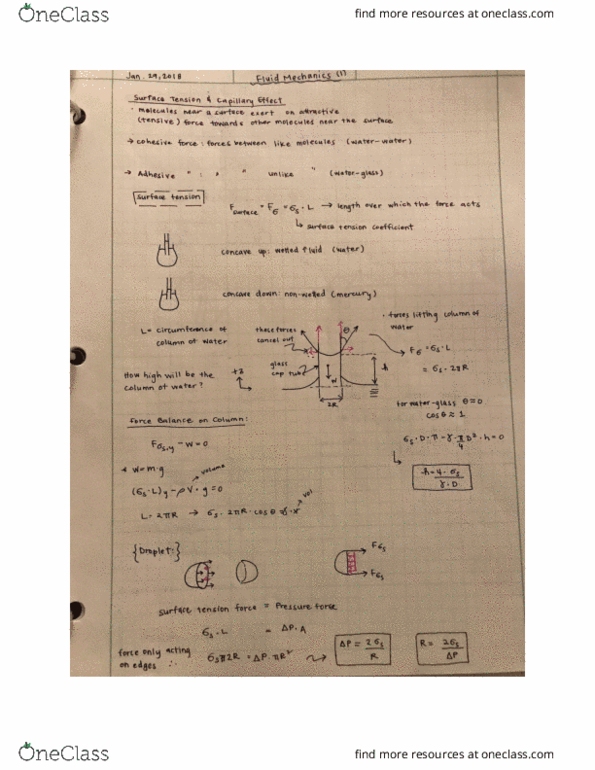 OneClass
find more resources at oneclass.com
Jan. 29, 2018
Fluid Mechanics (1)
Surface Tension & Capillary Effect
• molecules near a surface exert an attractive
(tensive) force towards other molecules near the surface
→ cohesive force: forces between like molecules (water-water)
→ Adhesive " : " " unlike " (water-glass)
Surface tension
Fsurface = Fσ = σs · L → length over which the force acts
↳ surface tension coefficient
concave up: wetted fluid (water)
concave down: non-wetted (mercury)
L = circumference of
column of water
these forces
cancel out
θ
• forces lifting column of
water
Fσ = σs · L
= σs · 2πR
glass
cap tube
w
h
2R
+z
How high will be the
column of water?
for water-glass θ≈0
cosθ ≈ 1
Force Balance on Column:
Fσs,y - W = 0
σs · D · π - γ · π/4 D² · h = 0
* W = m·g
volume
(σs · L)y - ρV · g = 0
h = 4 · σs / γ · D
vol
L = 2πR → σs · 2πR · cos θ γ · V
{Droplet:}
Fσs
Fσs
surface tension force = Pressure force
σs · L = ΔP · A
force only acting
on edges ∴
σsπ2R = ΔP · πR²
ΔP = 2σs / R
R = 2σs / ΔP
OneClass
find more resources at oneclass.com